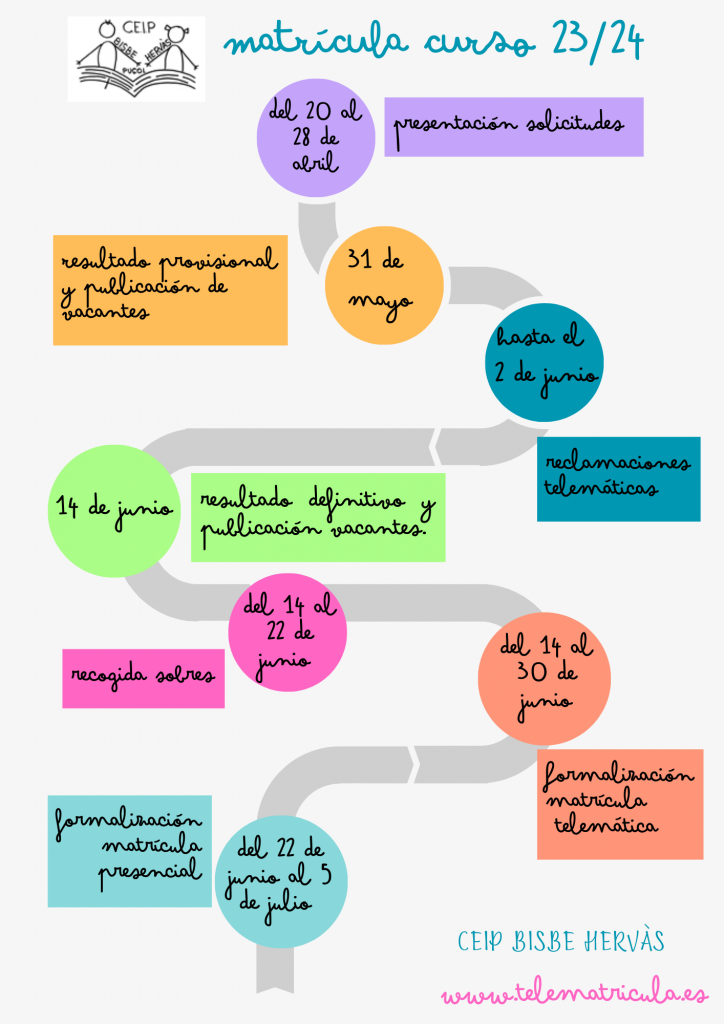 CEIP
BISBE HERVÀS
PUÇOL
matrícula curso 23/24
del 20 al
28 de
abril
presentación solicitudes
resultado provisional
y publicación de
vacantes
31 de
mayo
hasta el
2 de junio
reclamaciones
telemáticas
14 de junio
resultado definitivo y
publicación vacantes.
del 14 al
22 de
junio
recogida sobres
del 14 al
30 de
junio
formalización
matrícula
telemática
formalización
matrícula
presencial
del 22 de
junio al 5
de julio
CEIP BISBE HERVÀS
www.telematricula.es